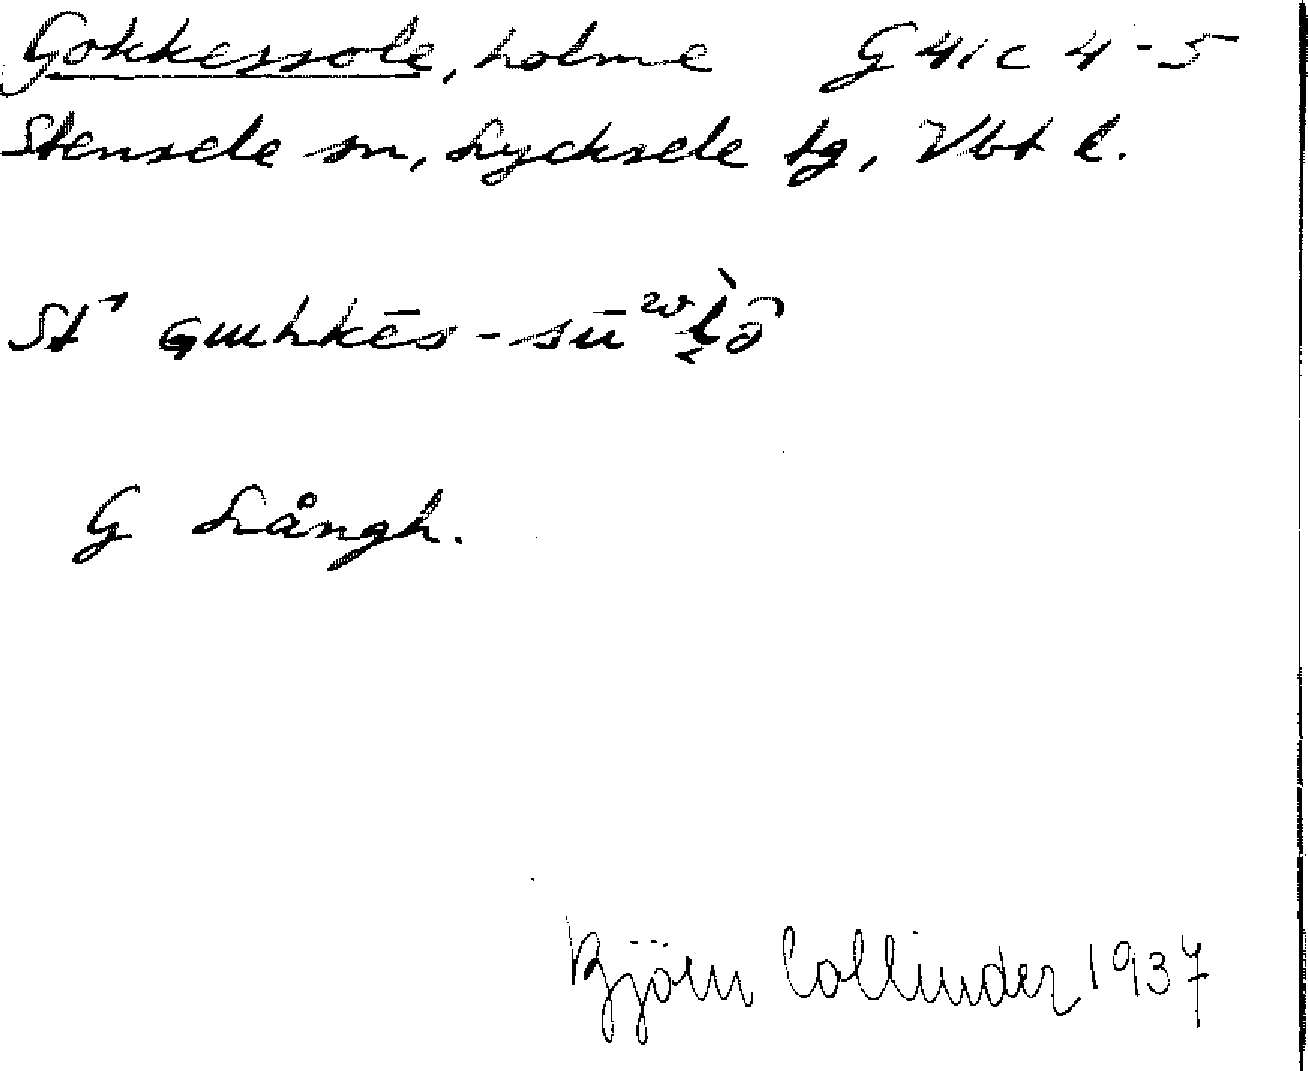 Gokkessole, holme G 41c 4-5
Stensele sn, Lycksele tg, Vbt l.
G Långh.
Björn Collinder 1937